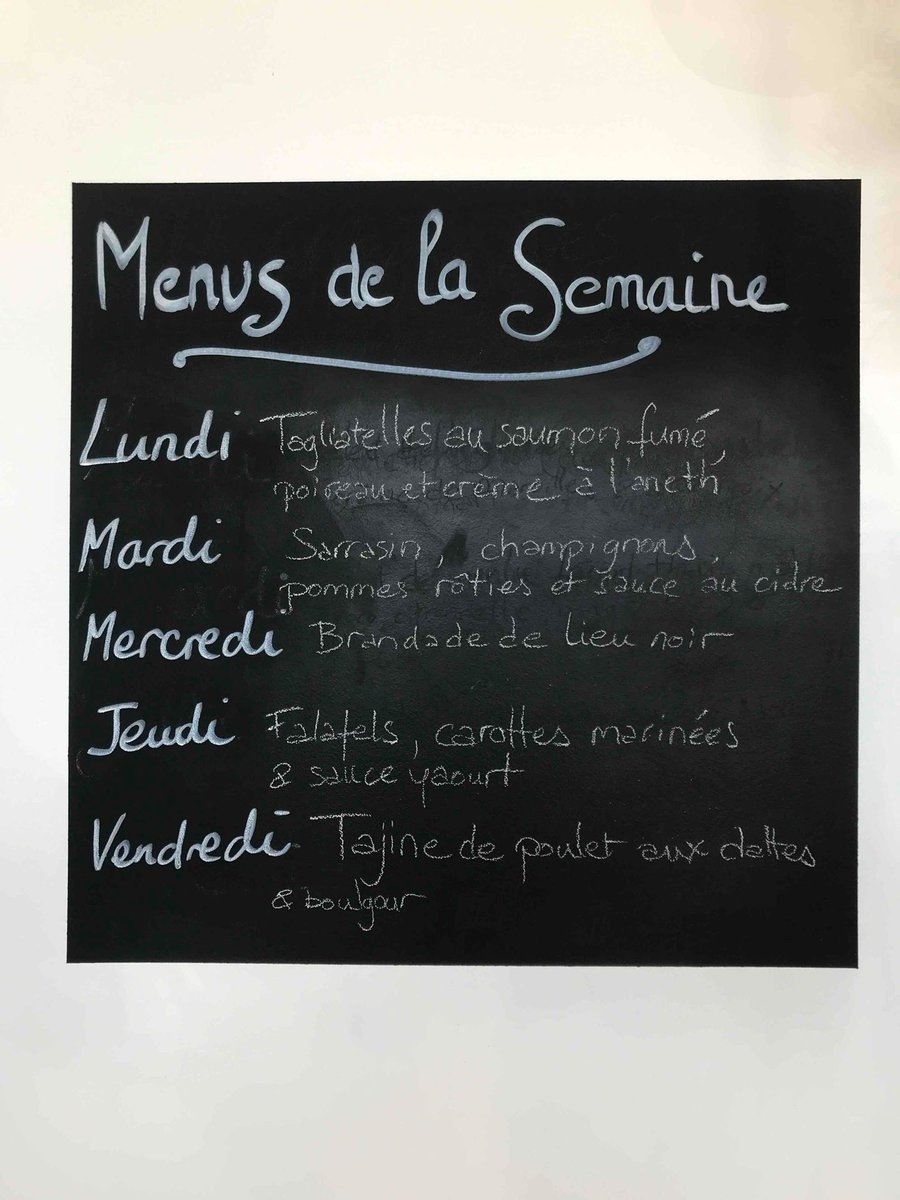 Menus de la Semaine
Lundi Tagliatelles au saumon fumé,
poireau et crème à l'aneth
Mardi Sarrasin, champignons,
pommes rôties et sauce au cidre
Mercredi Brandade de lieu noir
Jeudi Falafels, carottes marinées
& sauce yaourt
Vendredi Tajine de poulet aux dattes
& boulgour